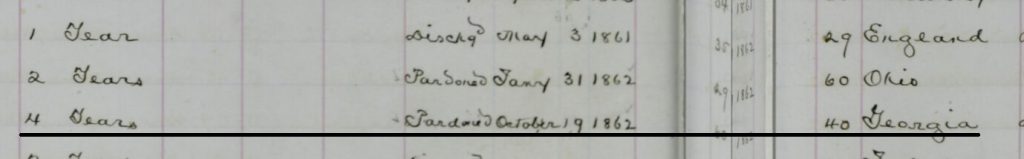 1 Year Dischgd May 3 1861 29 England
2 Years Pardoned Jany 31 1862 60 Ohio
4 Years Pardoned October 19 1862 40 Georgia